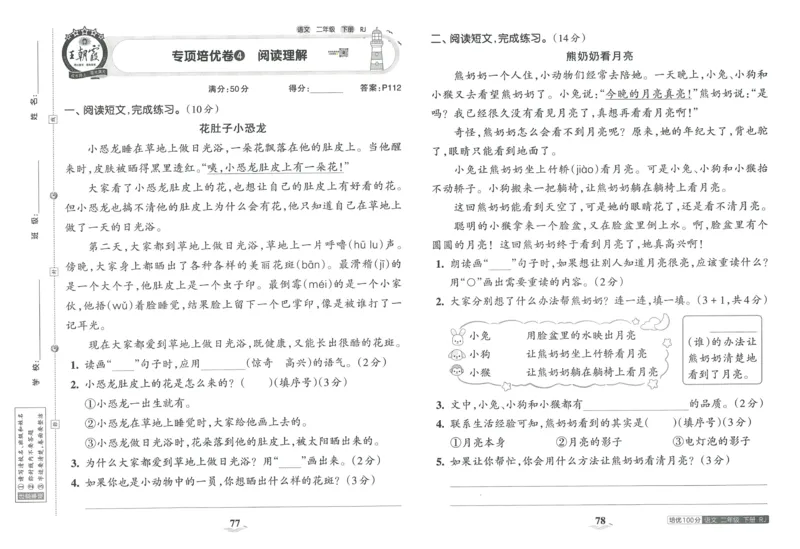 语文 二年级 下册 RJ
王朝霞
专项培优卷④ 阅读理解
满分:50分 得分:______ 答案:P112
一、阅读短文,完成练习。(10分)
花肚子小恐龙
小恐龙睡在草地上做日光浴,一朵花飘落在他的肚皮上。当他醒
来时,皮肤被晒得黑里透红。“咦,小恐龙肚皮上有一朵花!”
大家看了小恐龙肚皮上的花,也想让自己的肚皮上有好看的花。
但小恐龙也搞不清他的肚皮上为什么会有花,他只知道自己在草地上
做了一天的日光浴。
第二天,大家都到草地上做日光浴,草地上一片呼噜(hū lu)声。
傍晚,大家身上都晒出了各种各样的美丽花斑(bān)。最滑稽(jī)的
是一个大个子,他肚皮上是一个虫子印。最倒霉(méi)的是一个小家
伙,他捂(wǔ)着脸睡觉,结果脸上留下一个巴掌印,像是被谁打了一
记耳光。
现在大家都爱到草地上做日光浴,既健康,又能长出很酷的花斑。
1. 读画“____”句子时,应用________(惊奇 高兴)的语气。(2分)
2. 小恐龙肚皮上的花是怎么来的?( )(填序号)(3分)
①小恐龙一出生就有。
②小恐龙在草地上睡觉时,大家给他画上去的。
③小恐龙做日光浴时,花朵落到他的肚皮上,被太阳晒出来的。
3. 为什么大家都爱到草地上做日光浴?用“____”画出来。(2分)
4. 如果你也是小动物中的一员,你想晒出什么样的花斑?(3分)
77
姓 名:
班 级:
学 校:
二、阅读短文,完成练习。(14分)
熊奶奶看月亮
熊奶奶一个人住,小动物们经常去陪她。一天晚上,小兔、小狗和
小猴又去看望熊奶奶了。小兔说:“今晚的月亮真亮!”熊奶奶说:“是
吗?我已经很久没有看见月亮了,真想再看看月亮啊!”
奇怪,熊奶奶怎么会看不到月亮呢?原来,她的年纪大了,背也驼
了,眼睛只能看到地面了。
小兔让熊奶奶坐上竹轿(jiào)看月亮。可是小兔、小狗和小猴抬
不动轿子。小狗搬来一把躺椅,让熊奶奶躺在躺椅上看月亮。
这回熊奶奶能看到天空了,可是她的眼睛花了,还是看不清月亮。
聪明的小猴拿来一个脸盆,又在脸盆里倒上水。啊,脸盆里有个
圆圆的月亮!这回熊奶奶终于看到月亮了,她真高兴啊!
1. 朗读画“____”句子时,如果想让别人知道月亮很亮,应该重读什么?
用“○”画出需要重读的内容。(2分)
2. 大家分别想了什么办法帮熊奶奶?连一连,填一填。(3+1,共4分)
小兔 用脸盆里的水映出月亮
小狗 让熊奶奶坐上竹轿看月亮
小猴 让熊奶奶躺在躺椅上看月亮
________
(谁)的办法让
熊奶奶清楚地
看到了月亮。
3. 文中,小兔、小狗和小猴都有______________的品质。(2分)
4. 联系生活经验可知,熊奶奶看到的其实是( )(填序号)(3分)
①月亮本身 ②月亮的影子 ③电灯泡的影子
5. 如果让你帮忙,你会用什么方法让熊奶奶看清月亮?(3分)
78
培优100分 语文 二年级 下册 RJ